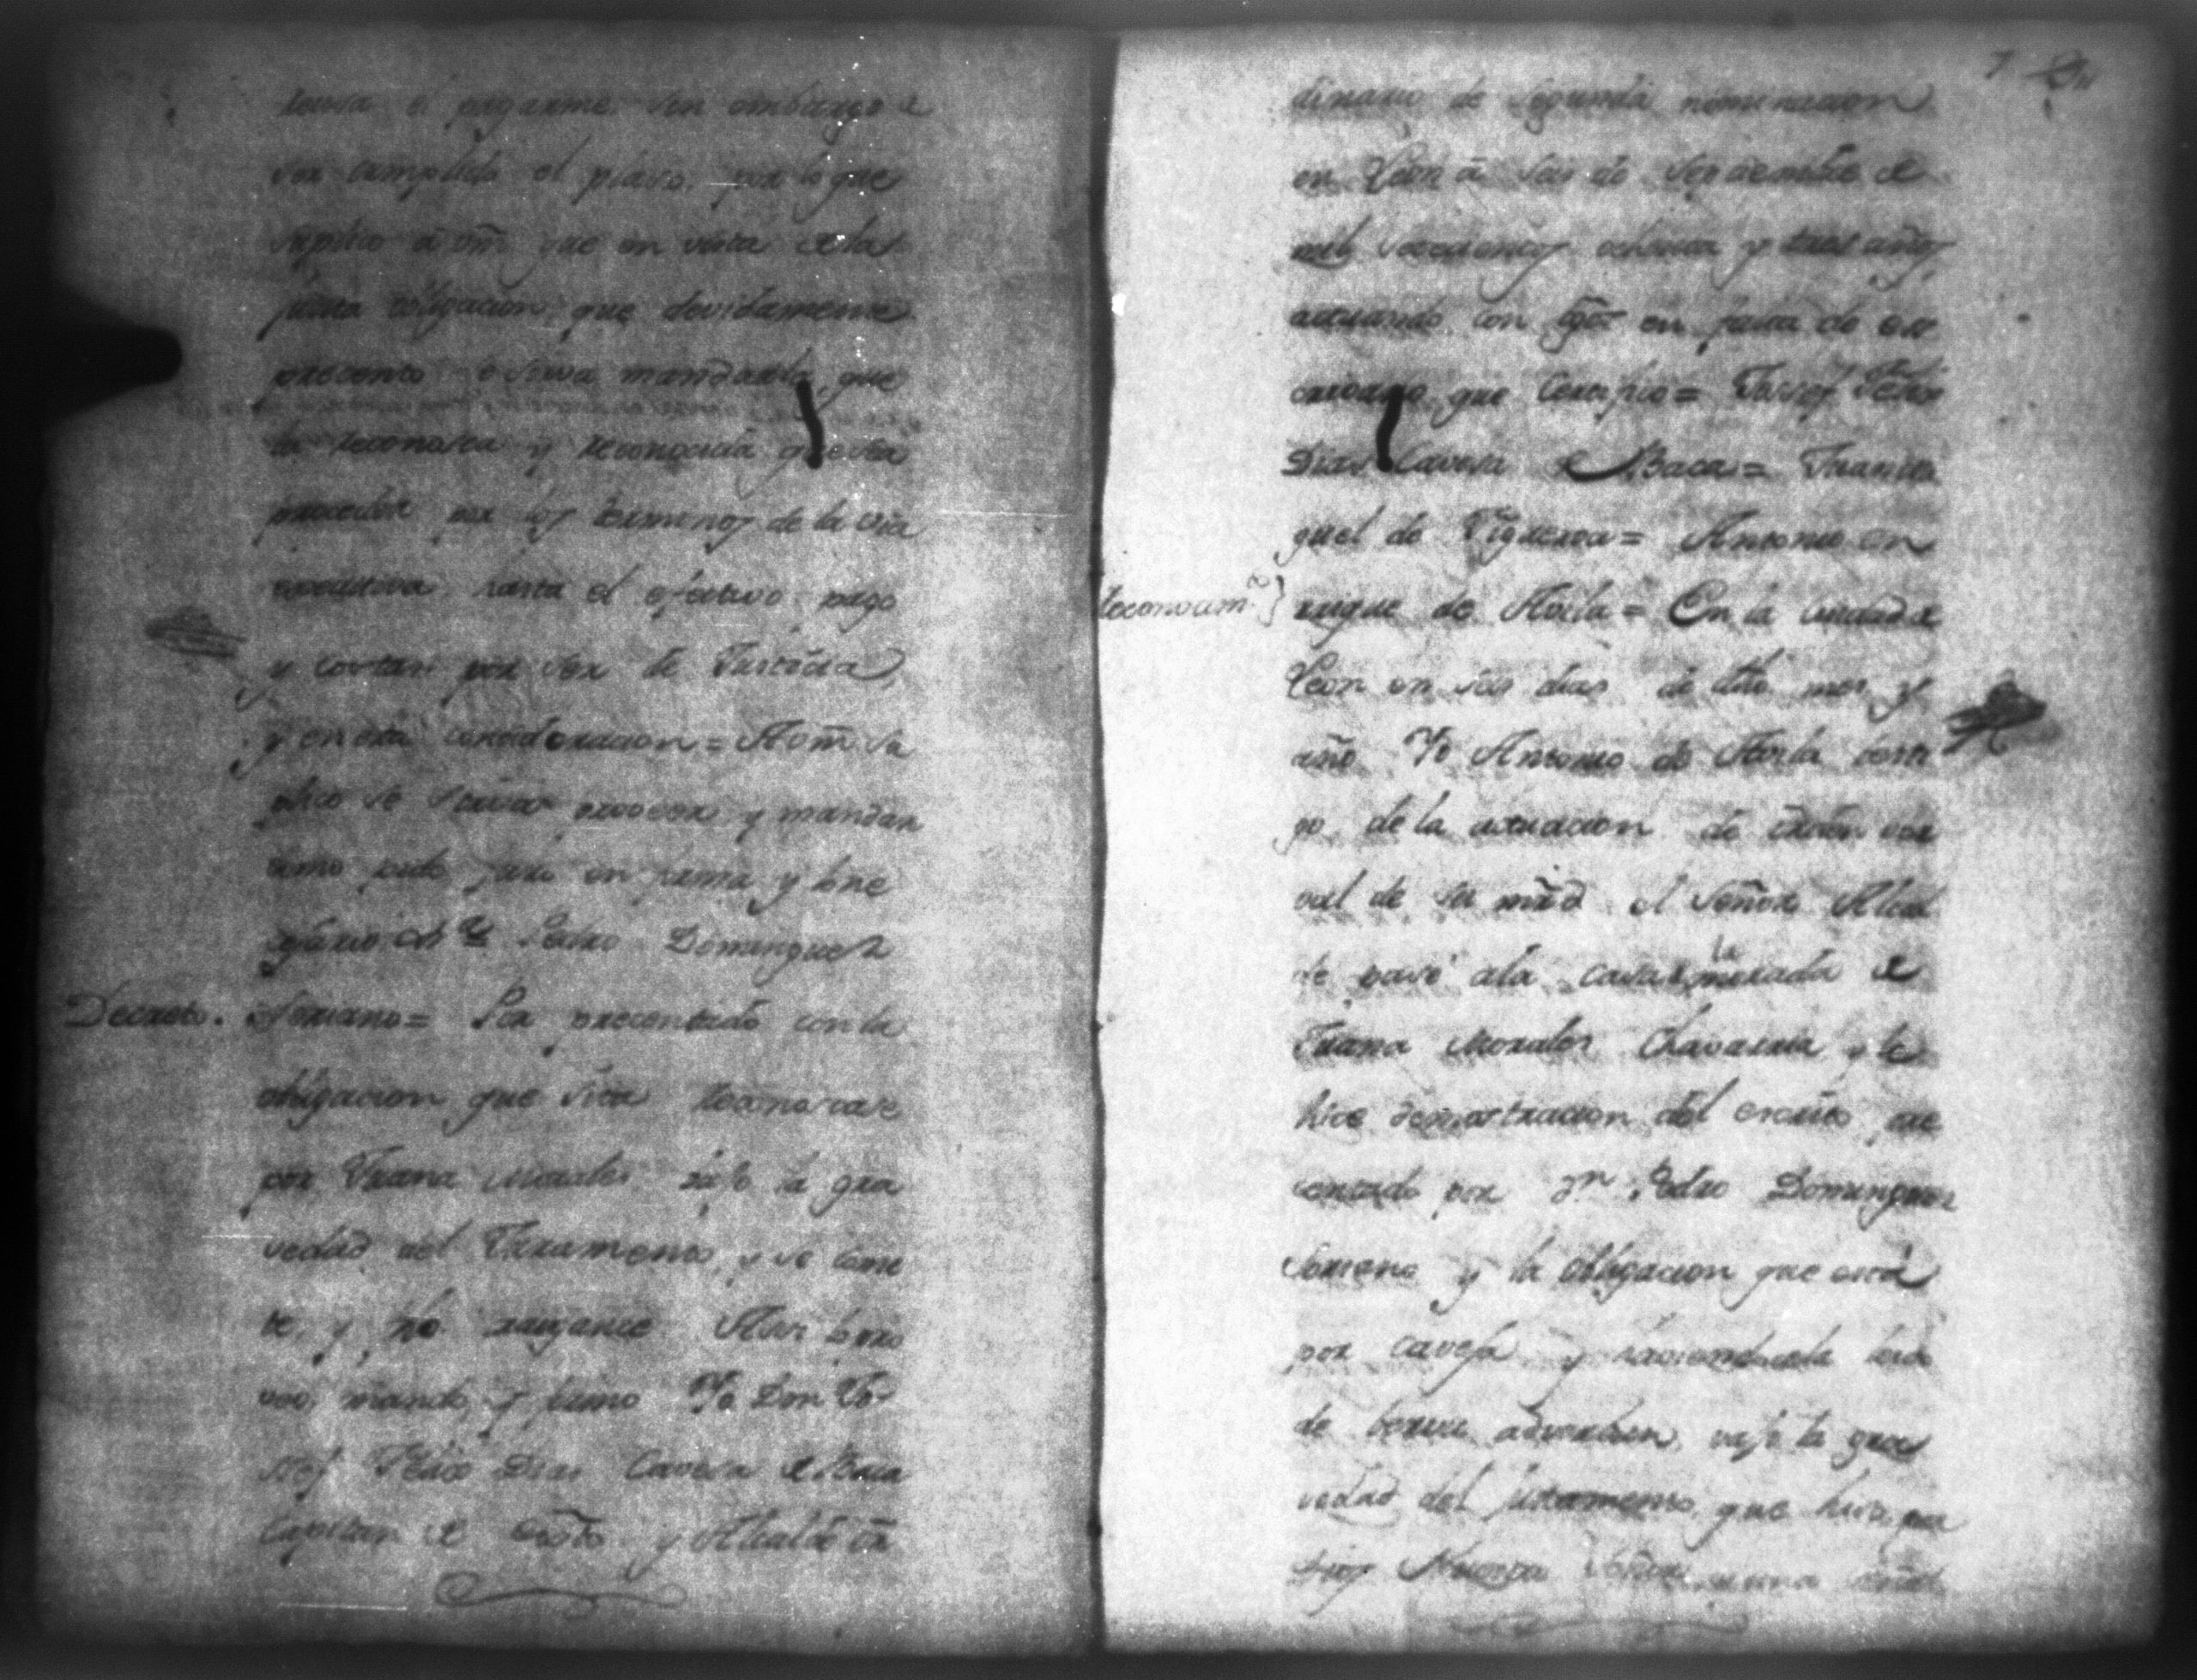 tensa el pagarme sin embargo de
ser cumplido el plaso, por lo que
suplico a vm̃. que en vista de la
justa obligacion que devidamente
presento se sirva mandarla, que
la reconosca y reconocida que sea
proceder por los terminos de la via
executiva hasta el efectivo pago
y costas por ser de Justicia,
y en esta consideracion = A vm̃ su
plico se sirva proveer y mandar
como pido juro en forma, y lo ne
cesario &.ª Pedro Dominguez
Decreto. Soriano = Por presentado con la
obligacion que será reconocase
por Juana Morales bajo la gra
vedad del Juramento, y se come
te, y
veo, mando, y firmo Yo Don Jo-
ssef Pedro Dias Cavesa de Baca
Capitan de y Alcalde or̃
7
dinario de segunda nominacion
en Leon á seis de Septiembre de
mil setecientos ochenta y tres años
actuando con tgõs en falta de es
crivano que Certifico = Jossef Pedro
Dias Cavesa de Baca = Juan Mi
guel de Figueroa = Antonio En
Reconocim.to } rrique de Abila = En la ciudad de
Leon en seis dias de dho mes y
año. Yo Antonio de Abila testi
go de la actuacion de orden ver
val de su mr̃d el Señor Alcal
de pasé a la casa de la morada de
Juana Morales Chavarria y le
hice demostracion del escrito pre
sentado por Dn Pedro Dominguez
Soriano y la obligacion que está
por cavesa y
de bajo la gra
vedad del juramento, que hiso por
Dios Nuestro Señor, y una señal